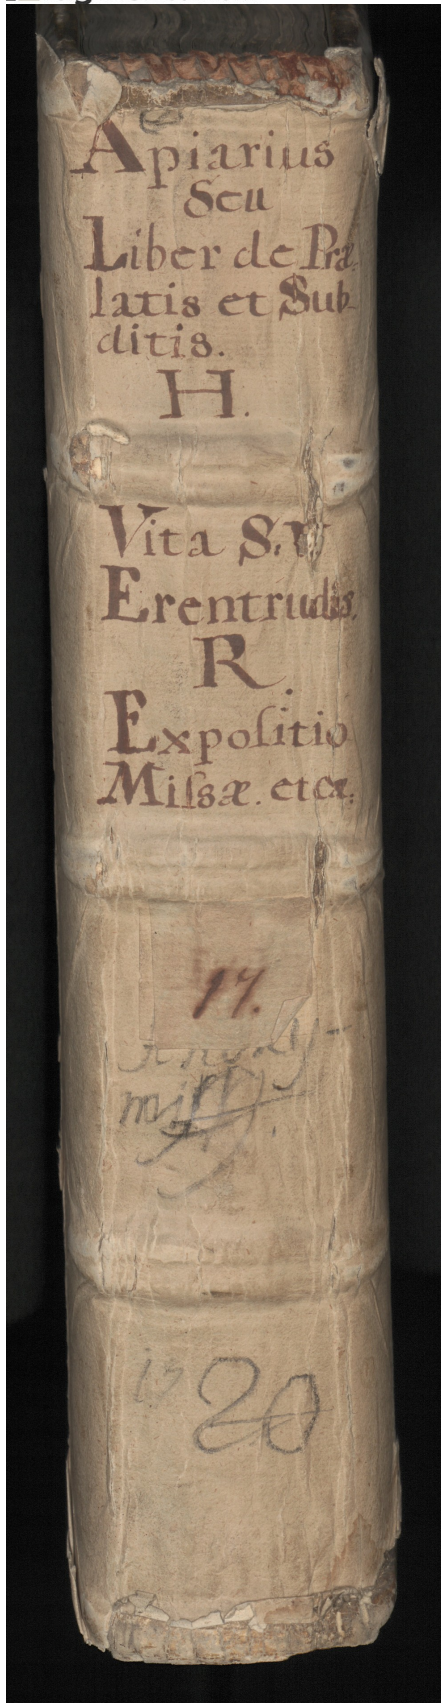 Apiarius
Seu
Liber de Præ
latis et Sub-
ditis.
H.
Vita S. V
Erentrudis.
R.
Expoſitio
Miſsæ. et cæ.
17.
20